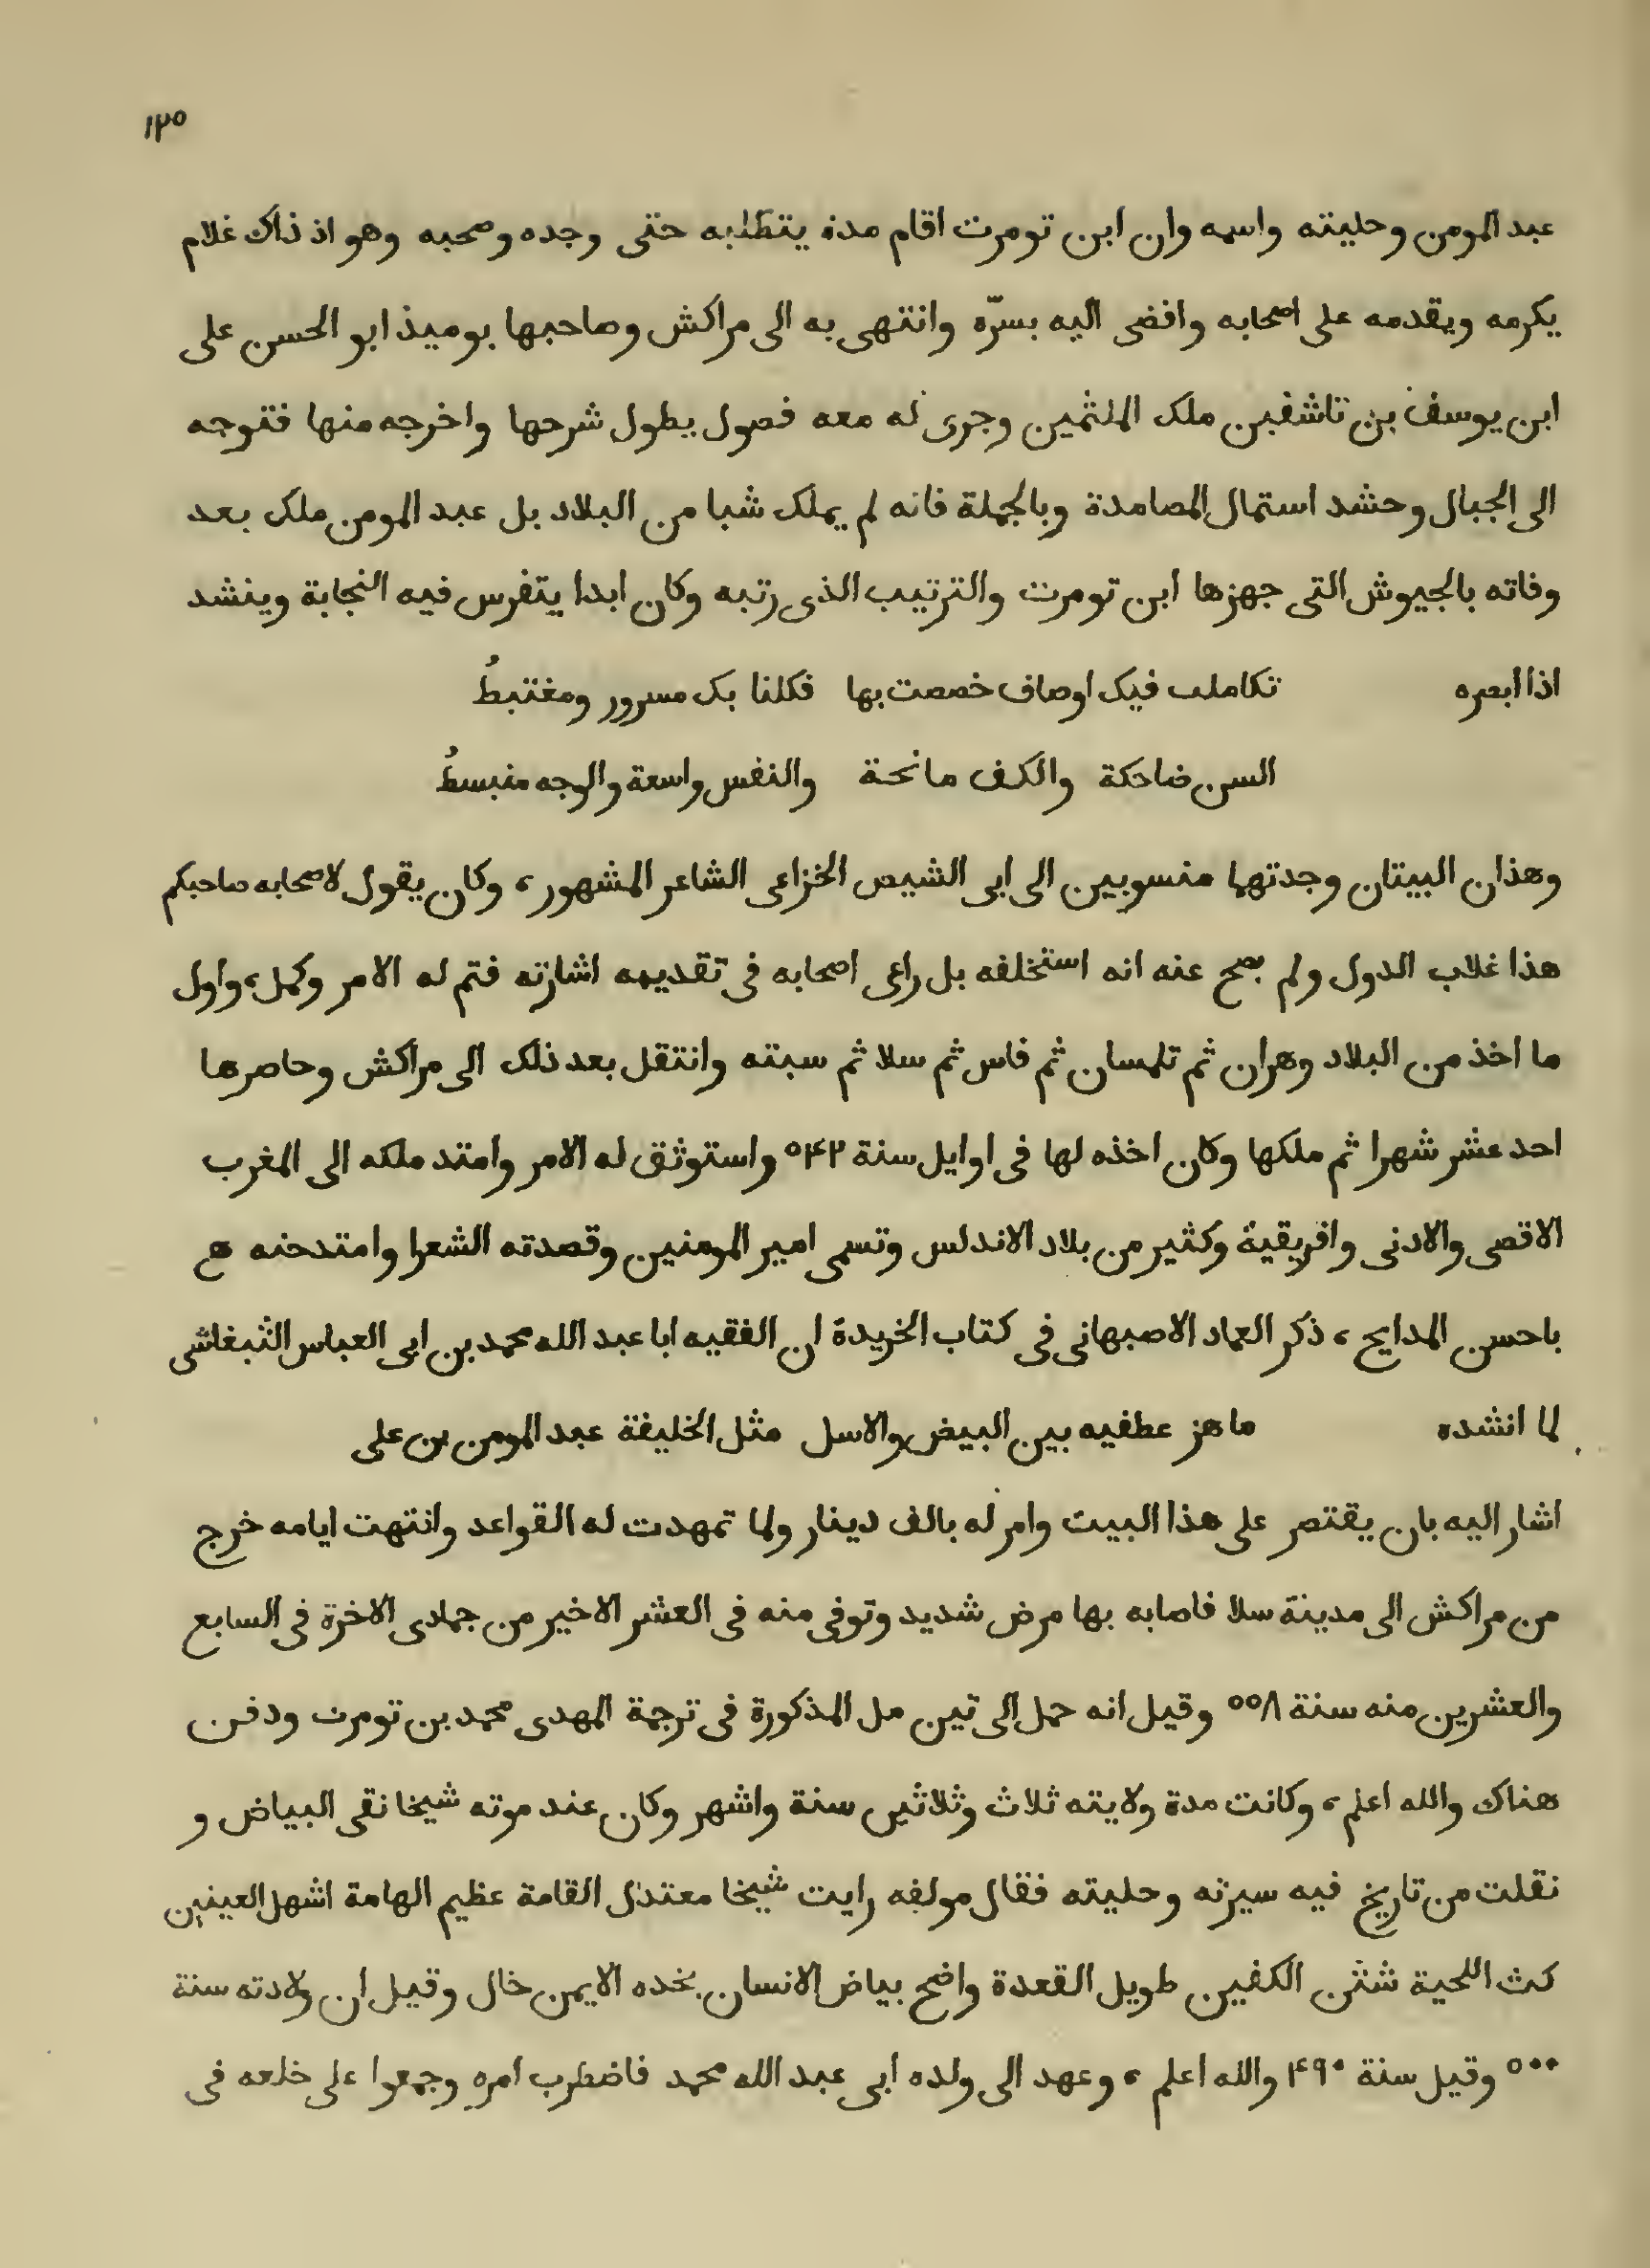 ١٢٥
عبد المومن وحليته واسمه وان ابن تومرت اقام مدة يتطلبه حتى وجده وصحبه وهو اذ ذاك غلام
يكرمه ويقدمه على اصحابه وافضى اليه بسرّه وانتهى به الى مراكش وصاحبها يوميذ ابو الحسن على
ابن يوسف بن تاشفين ملك الملثمين وجرى له معه فصول يطول شرحها واخرجه منها فتوجه
الى الجبال وحشد استمال المصامدة وبالجملة فانه لم يملك شيا من البلاد بل عبد المومن ملك بعد
وفاته بالجيوش التى جهزها ابن تومرت والترتيب الذى رتبه وكان ابدا يتفرس فيه النجابة وينشد
اذا ابصره تكاملت فيك اوصاف خصصت بها فكلنا بك مسرور ومغتبطُ
السن ضاحكة والكف مانحة والنفس واسعة والوجه منبسطُ
وهذان البيتان وجدتهما منسوبين الى ابى الشيص الخزاعى الشاعر المشهور، وكان يقول لاصحابه صاحبكم
هذا غلاب الدول ولم يصح عنه انه استخلفه بل راعى اصحابه فى تقديمه اشارته فتم له الامر وكمل، واول
ما اخذ من البلاد وهران ثم تلمسان ثم فاس ثم سلا ثم سبته وانتقل بعد ذلك الى مراكش وحاصرها
احد عشر شهرا ثم ملكها وكان اخذه لها فى اوايل سنة ٥٤٢ واستوثق له الامر وامتد ملكه الى المغرب
الاقصى والادنى وافريقية وكثير من بلاد الاندلس وتسمى امير المومنين وقصدته الشعرا وامتدحنه
باحسن المدايح، ذكر العماد الاصبهانى فى كتاب الخريدة ان الفقيه ابا عبد الله محمد بن ابى العباس التيفاشى
لما انشده ما هز عطفيه بين البيض والاسل مثل الخليفة عبد المومن بن على
اشار اليه بان يقتصر على هذا البيت وامر له بالف دينار ولما تمهدت له القواعد وانتهت ايامه خرج
من مراكش الى مدينة سلا فاصابه بها مرض شديد وتوفى منه فى العشر الاخير من جمادى الاخرة فى السابع
والعشرين منه سنة ٥٥٨ وقيل انه حمل الى تين مل المذكورة فى ترجمة المهدى محمد بن تومرت ودفن
هناك والله اعلم، وكانت مدة ولايته ثلاث وثلاثين سنة واشهر وكان عند موته شيخا نقى البياض و
نقلت من تاريخ فيه سيرته وحليته فقال مولفه رايت شيخا معتدل القامة عظيم الهامة اشهل العينين
كث اللحية شثن الكفين طويل القعدة واضح بياض الانسان بخده الايمن خال وقيل ان ولادته سنة
٥٠٠ وقيل سنة ٤٩٠ والله اعلم، وعهد الى ولده ابى عبد الله محمد فاضطرب امره وجمعوا على خلعه فى